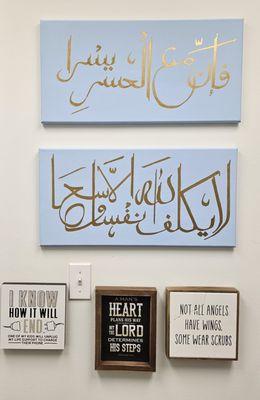 فإن مع العسر يسرا
لا يكلف الله نفسا إلا وسعها
I KNOW
HOW IT WILL
END
ONE OF MY KIDS WILL UNPLUG
MY LIFE SUPPORT TO CHARGE
THEIR PHONE
A MAN'S
HEART
PLANS HIS WAY
BUT THE
LORD
DETERMINES
HIS STEPS
NOT ALL ANGELS
HAVE WINGS,
SOME WEAR SCRUBS